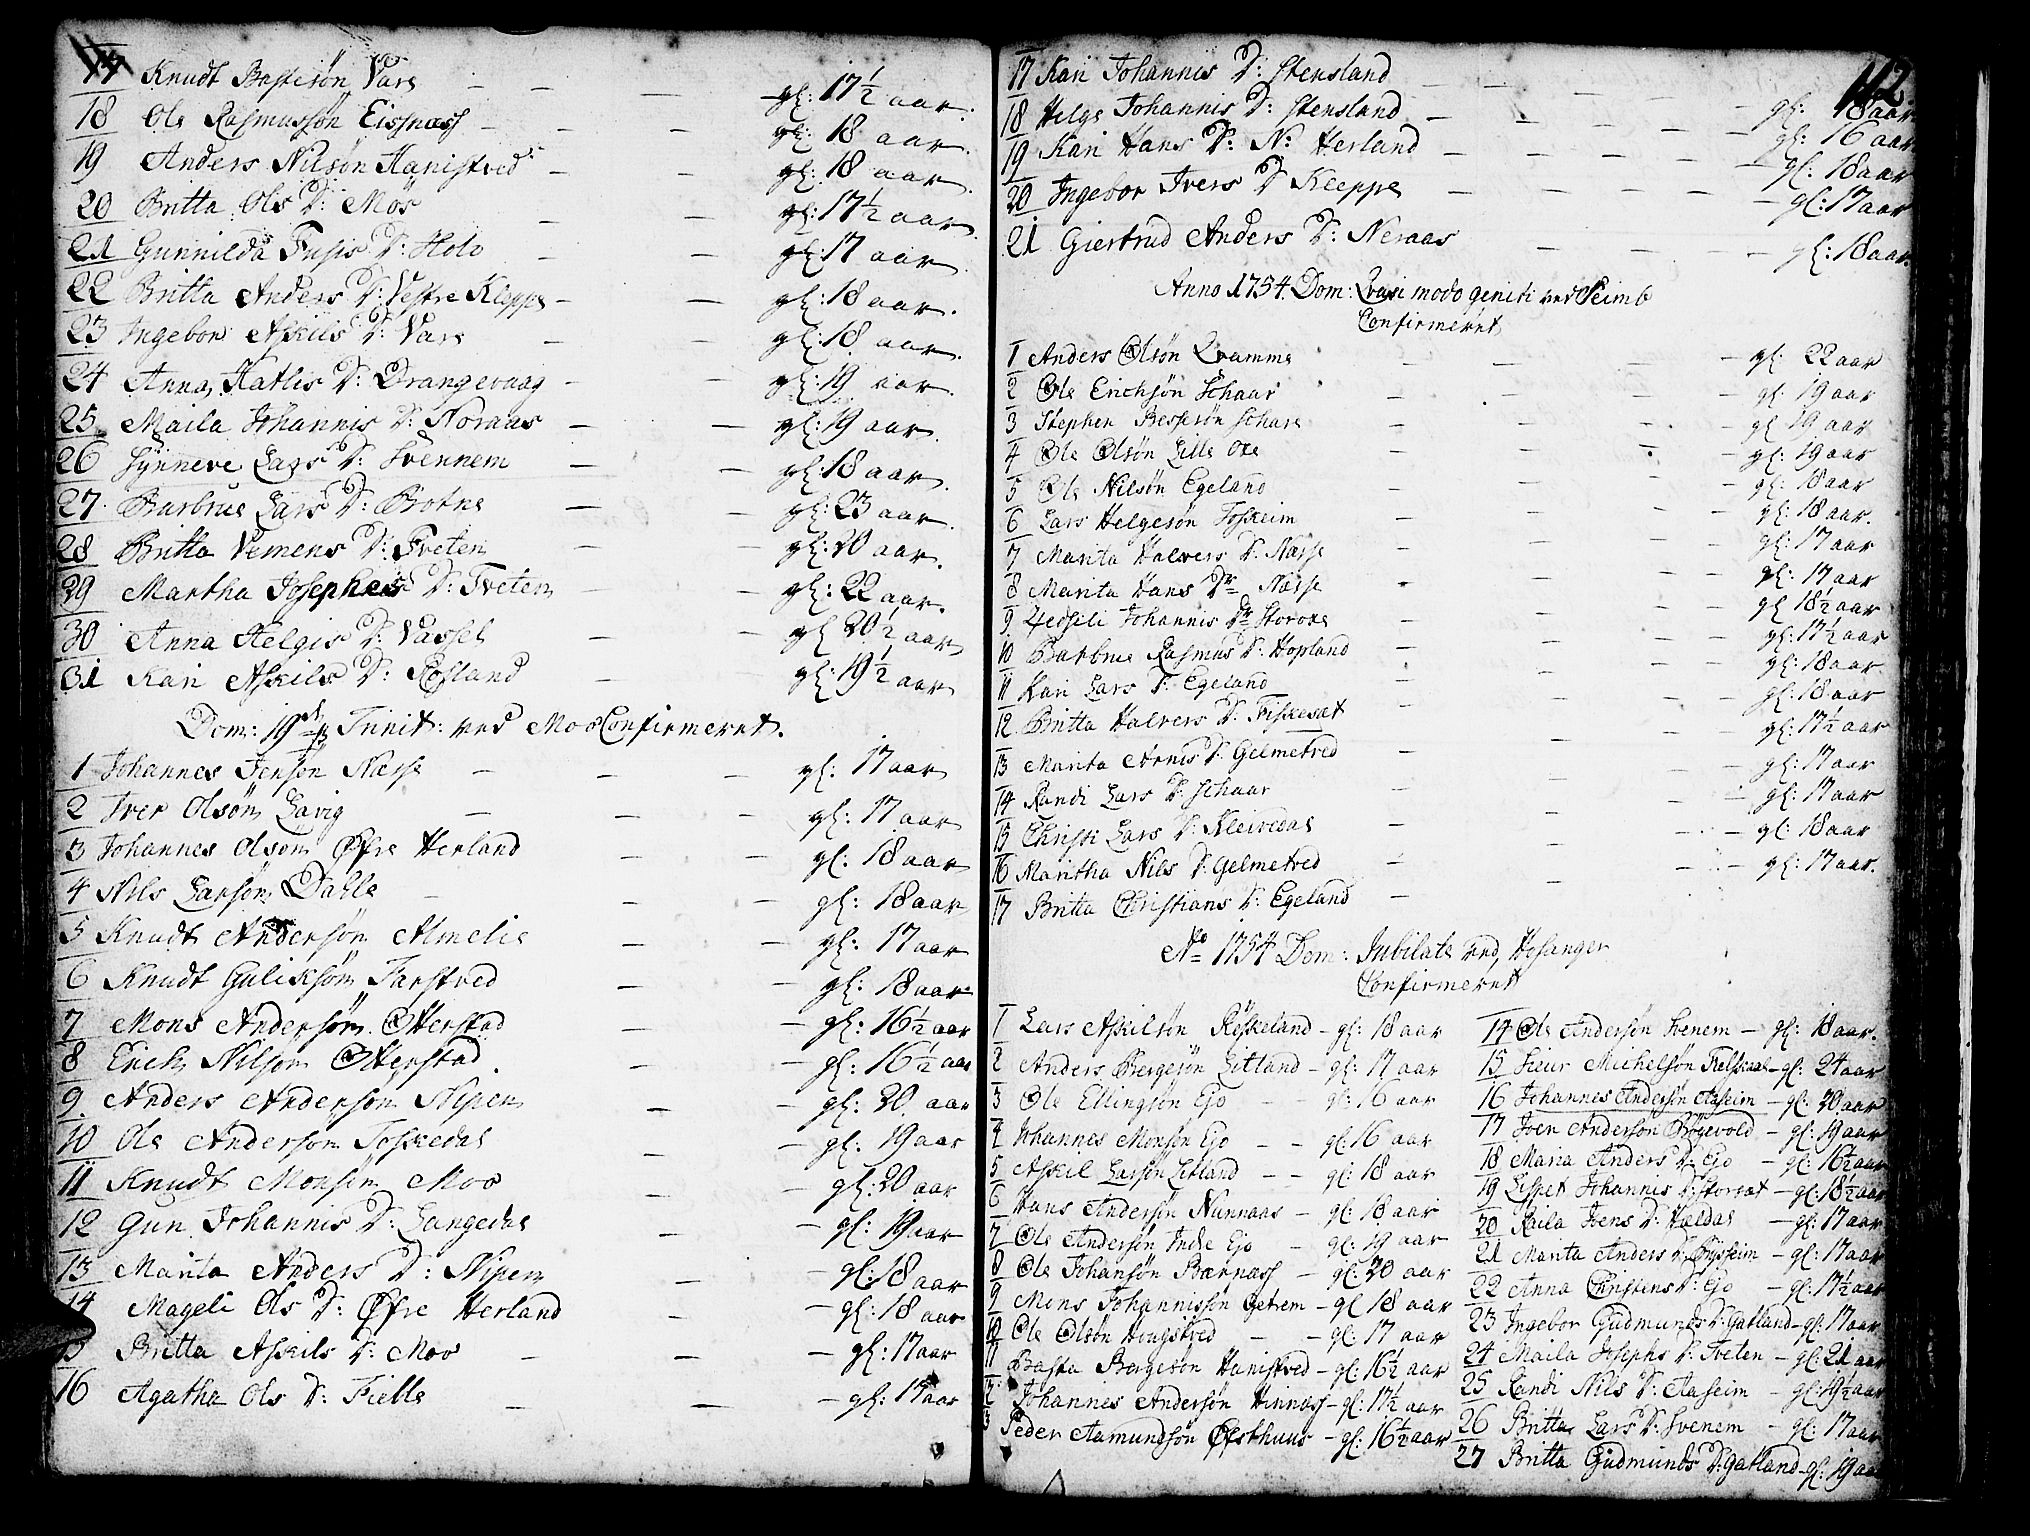 17 Knudt Bastesøn Vare gl: 17½ aar.
18 Ole Rasmussøn Eissnæss gl: 18 aar.
19 Anders Nilsøn Hanistved gl: 18 aar.
20 Britta Ols D: Mos gl: 17½ aar.
21 Gunnilda D: Holo gl: 17 aar.
22 Britta Anders D: Vestre Kleppe gl: 18 aar.
23 Ingebor Askils D: Vare gl: 18 aar.
24 Anna Hatlis D: Drangevaag gl: 19 aar.
25 Maila Johannis D: Noraas gl: 19 aar.
26 Synneve Lars D: Svennem gl: 18 aar.
27 Barbrue Lars D: Botne gl: 23 aar.
28 Britta Vemens D: Tveten gl: 20 aar.
29 Martha Josephes D: Tveten gl: 22 aar.
30 Anna Helgis D: Vassel gl 20½ aar
31 Kari Askils D: Rosland gl: 19½ aar
Dom: 19 p Trinit: ved Moo Confirmeret.
1 Johannes Jensøn Næsse gl: 17 aar
2 Iver Olsøn Lavig gl: 17 aar
3 Johannes Olsøn Øfre Herland gl: 18 aar
4 Nils Larsøn Dahle gl: 18 aar
5 Knudt Andersøn Almelie gl: 17 aar
6 Knudt Guliksøn Farstved gl: 18 aar
7 Mons Andersøn Otterstad gl: 16½ aar
8 Erich Nilsøn Otterstad gl: 16½ aar
9 Anders Andersøn Nipen gl: 20 aar
10 Ole Andersøn Toskedal gl: 19 aar
11 Knudt Monsøn Moo gl: 20 aar
12 Gun Johannis D: Langedal gl: 19 aar
13 Marita Anders D: Nipen gl: 18 aar
14 Mageli Ols D: Øfre Herland gl: 18 aar
15 Britta Askils D: Moo gl: 17 aar
16 Agatha Ols D: Fielle gl: 17 aar
112
17 Kari Johannis D: Stensland gl: 18 aar
18 Helge Johannis D: Stensland gl: 16 aar
19 Kari Hans D: N: Herland gl: 18 aar
20 Ingebor Ivers D Kleppe gl: 17 aar
21 Giertrud Anders D: Neraas gl: 18 aar.
Anno 1754. Dom: Qvasi modo geniti ved Seimb
Confirmeret
1 Anders Olsøn Qvamme gl: 22 aar
2 Ole Erichsøn Schaar gl: 19 aar
3 Stephen Bessesøn Schare gl 19 aar
4 Ole Olsøn Lille Oxe gl: 19 aar
5 Ole Nilsøn Egeland gl: 18 aar
6 Lars Helgesøn Toskeim gl: 18 aar.
7 Marita Halvers D: Næsse gl: 17 aar
8 Marita Hans Dr Næsse gl: 17 aar
9 Johannis Dr Storoxe gl 18½ aar
10 Barbrue Rasmus D: Hopland gl: 17½ aar
11 Kari Lars D: Egeland gl: 18 aar.
12 Britta Halvers D: Fiskesæt gl: 18 aar
13 Marita Arnis D: Gelmetved gl: 17½ aar
14 Randi Lars D: Schaar gl: 17 aar
15 Christi Lars D: Kleivedal gl: 17 aar
16 Maritha Nils D: Gelmetved gl: 18 aar
17 Britta Christians D: Egeland gl: 17 aar.
Ao 1754 Dom: Jubilate ved Hosanger
Confirmeret
1 Lars Askilsøn Røskeland gl: 18 aar
2 Anders Bergesøn Litland gl: 17 aar
3 Ole Ellingsøn Ejo gl: 16 aar
4 Johannes Monsøn Ejo gl: 16 aar
5 Askil Larsøn Litland gl: 18 aar
6 Hans Andersøn Nunnaas gl: 18 aar
7 Ole Andersøn Indre Ejo gl: 19 aar
8 Ole Johansøn Bærnæss gl: 20 aar
9 Mons Johannissøn Getrem gl 18 aar
10 Ole Olsøn Hougstved gl: 17 aar
11 Basta Bergesøn Hanistved gl: 16½ aar
12 Johannes Andersøn Hinnæss gl: 17½ aar
13 Peder Aamundsøn Øfsthuus gl: 16½ aar
14 Ole Andersøn Svenem gl: 18 aar.
15 Siur Michelsøn gl: 24 aar
16 Johannes Andersøn Aaseim gl: 20 aar
17 Iver Andersøn Bøgevold gl: 19 aar
18 Maria Anders D: Ejo gl: 16½ aar
19 Lispet Johannis D: Storsæt gl: 18½ aar
20 Raila Ivers D: Hældal gl: 17 aar
21 Marita Anders D: gl: 17 aar
22 Anna Christens D: Ejo gl: 17½ aar
23 Ingebor Gudmunds D: Gatland gl: 17 aar
24 Maila Josephs D: Tveten gl: 21 aar
25 Randi Nils D: Aaseim gl: 19½ aar
26 Britta Lars D: Svenem gl: 17 aar
27 Britta Gudmunds D: Gatland gl: 19 aar